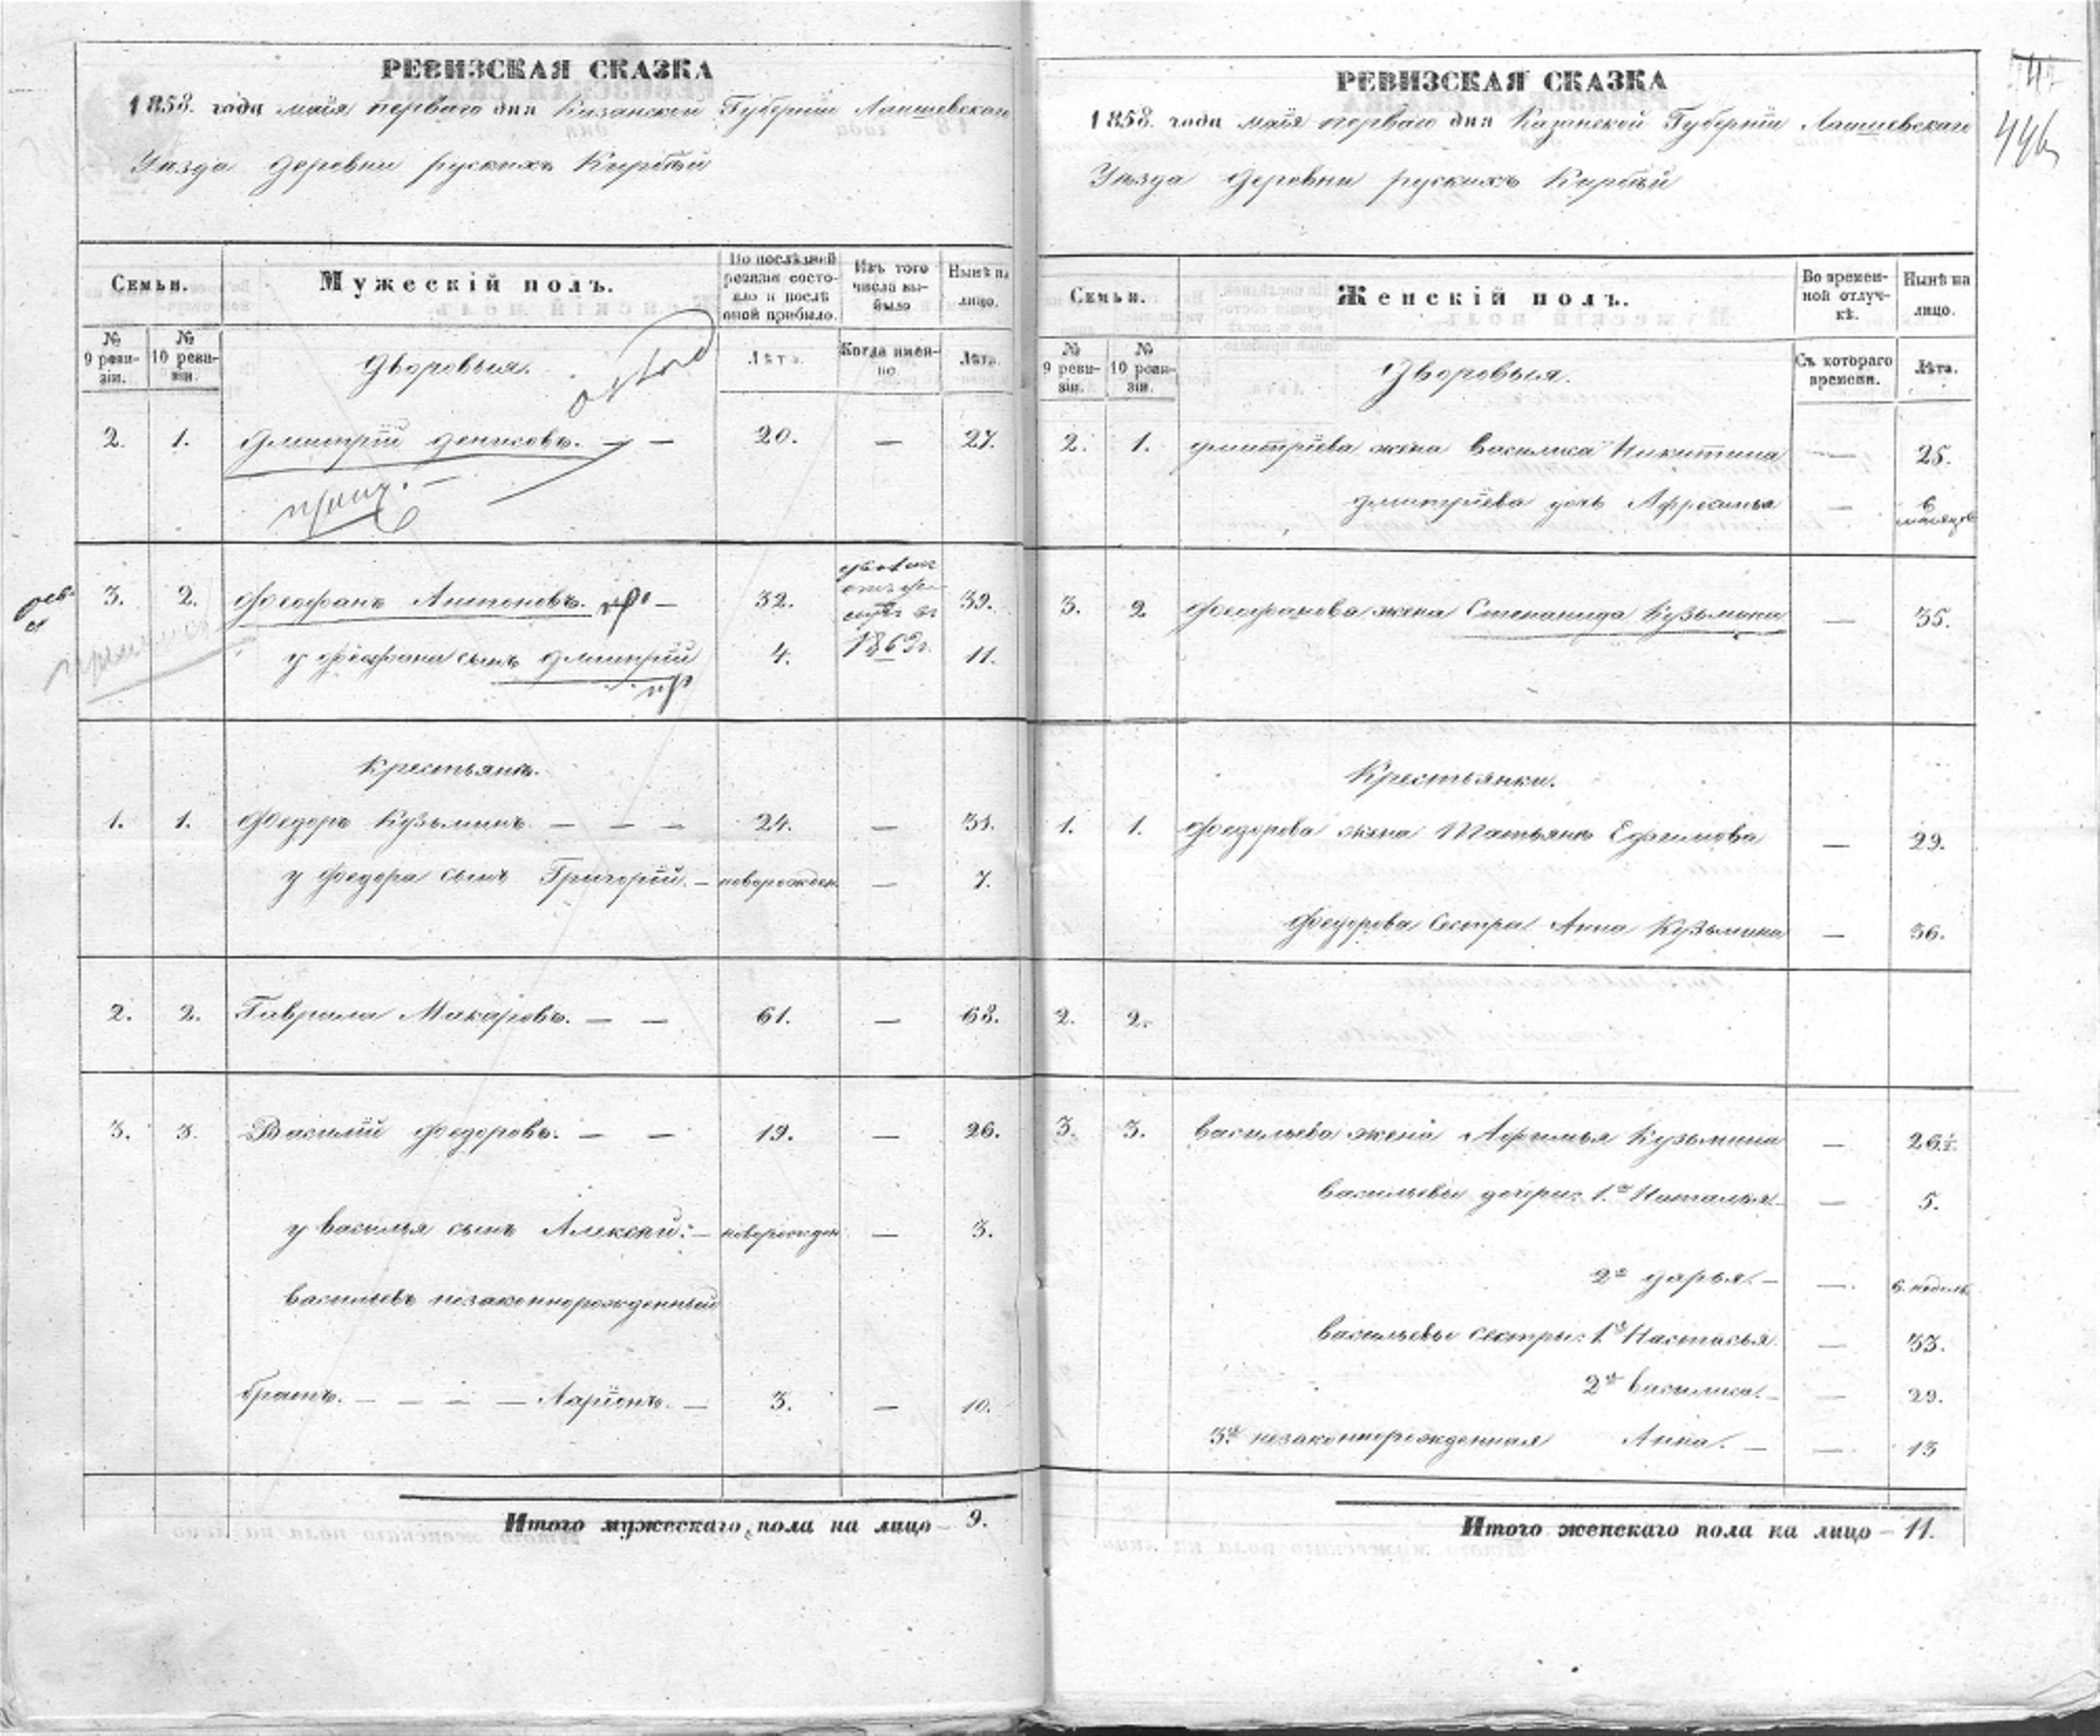 РЕВИЗСКАЯ СКАЗКА
1858. года маія перваго дня Казанской Губерніи Лаишевскаго
Уѣзда деревни рускихъ Кирбый
Семьи.
Мужескій полъ.
По послѣдней ревизіи состояло и послѣ оной прибыло.
Изъ того числа выбыло
Нынѣ на лицо.
№ 9 ревизіи.
№ 10 ревизіи.
Дворовыя.
Лѣта.
Когда именно.
Лѣта.
2. 1. Дмитрій Денисовъ. — — 20. — 27.
3. 2. Феофанъ Антоновъ. — 32. 39.
1863г.
у Феофана сынъ Дмитрій 4. 11.
Крестьяне.
1. 1. Федоръ Кузьминъ — — — 24. — 31.
у Федора сынъ Григорій. — новорожден. — 7.
2. 2. Гаврила Макаровъ. — — 61. — 68.
3. 3. Василій Федоровъ. — — 19. — 26.
у Василья сынъ Алексѣй: — новорожден — 3.
Васильевъ незаконнорожденный
братъ. — — — — Ларіонъ. — 3. — 10.
Итого мужескаго пола на лицо — 9.
РЕВИЗСКАЯ СКАЗКА
446
1858. года маія перваго дня Казанской Губерніи Лаишевскаго
Уѣзда деревни рускихъ Кирбый
Семьи.
Женскій полъ.
Во временной отлучкѣ.
Нынѣ на лицо.
№ 9 ревизіи.
№ 10 ревизіи.
Дворовыя.
Съ котораго времени.
Лѣта.
2. 1. Дмитріева жена Василиса Никитина — 25.
Дмитріева дочь Афросинья — 6 месяцов
3. 2 Феофанова жена Степанида Кузьмина — 35.
Крестьянки.
1. 1. Федорова жена Татьяна Ефимова — 29.
Федорова сестра Анна Кузьмина — 36.
2. 2.
3. 3. Васильева жена Афимья Кузьмина — 26½.
Васильевы дочери: 1.я Наталья. — 5.
2я Дарья. — — 6. недель
Васильевы сестры: 1я Настасья — 33.
2я Василиса. — — 29.
3я незаконнорожденная Анна. — — 13
Итого женскаго пола на лицо — 11.